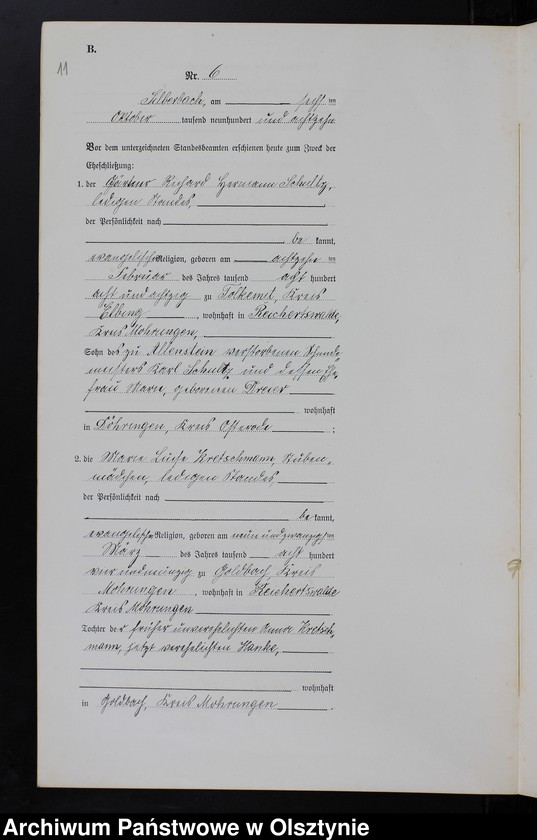 B.
11
Nr. 6
Silberbach, am sechs ten
Oktober tausend neunhundert und achtzehn
Vor dem unterzeichneten Standesbeamten erschienen heute zum Zweck der
Eheschließung:
1. der Gärtner Richard Hermann Schultz,
ledigen Standes,
der Persönlichkeit nach
be kannt,
evangelischer Religion, geboren am achtzehn ten
Februar des Jahres tausend acht hundert
acht und achtzig zu Tolkemit, Kreis
Elbing, wohnhaft in Reichertswalde,
Kreis Mohrungen,
Sohn des zu Allenstein verstorbenen
meisters Karl Schultz und dessen Ehe-
frau Marie, geborenen Dreier
wohnhaft
in Döhringen, Kreis Osterode ;
2. die Marie Luise Kretschmann, Stuben-
mädchen, ledigen Standes
der Persönlichkeit nach
be kannt,
evangelischer Religion, geboren am neun und zwanzigsten
März des Jahres tausend acht hundert
vier und neunzig zu Goldbach, Kreis
Mohrungen, wohnhaft in Reichertswalde
Kreis Mohrungen
Tochter der früher unverehelichten Anna Kretsch-
mann, jetzt verehelichten Hanke,
wohnhaft
in Goldbach, Kreis Mohrungen.
Archiwum Państwowe w Olsztynie